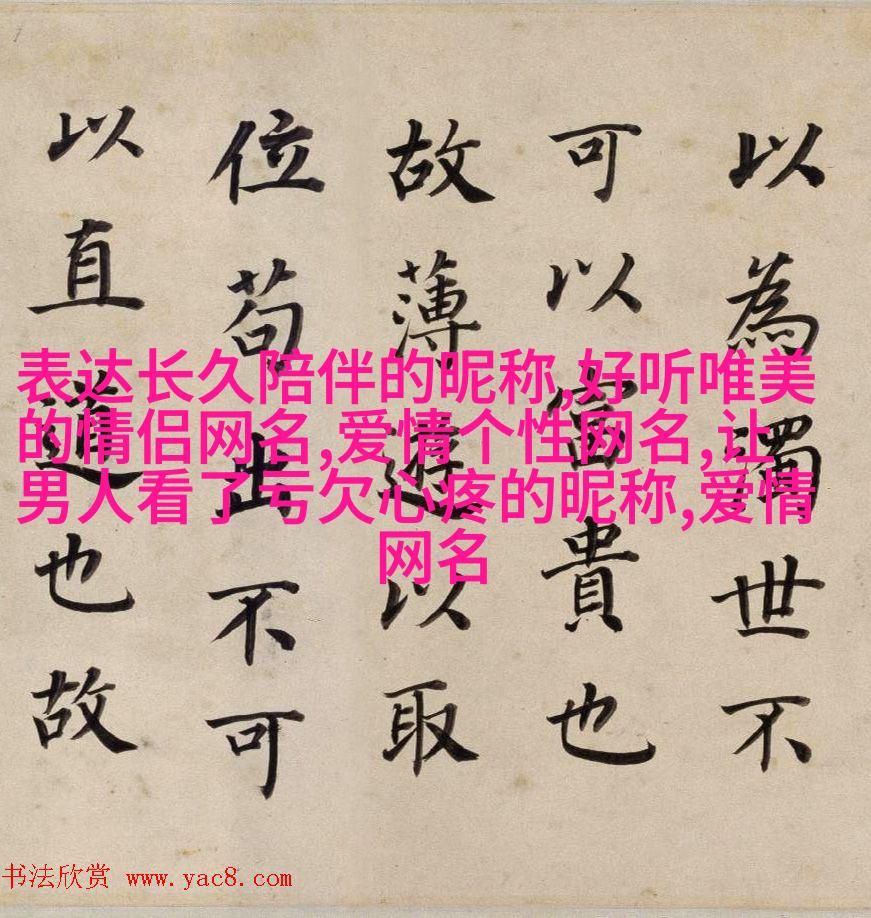 以為濁世不
可以富貴也
故薄遊以取
位苟出不可
以直道也故
表达长久陪伴的昵称,好听唯美
的情侣网名,爱情个性网名,让
男人看了亏欠心疼的昵称,爱情
网名
书法欣赏 www.yac8.com